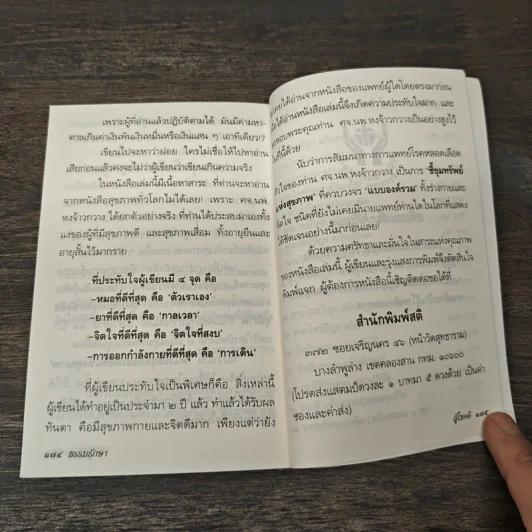 เพราะผู้ที่อ่านแล้วปฏิบัติตามได้ มันมีค่ามหา-
ศาลเกินค่าเงินพันเงินหมื่นหรือเงินแสน ๆ เอาทีเดียว!?
เขียนไปจะหาว่าฝอย ใครไม่เชื่อให้ไปหาอ่าน
เสียก่อนแล้วคงจะไม่ว่าผู้เขียนว่าเขียนเกินความจริง
ในหนังสือเล่มนี้มีเนื้อหาสาระ ที่ท่านจะหาอ่าน
จากหนังสือสุขภาพทั่วโลกไม่ได้เลย! เพราะ ศจ.นพ.
หงจ้าวกวาง ได้ยกตัวอย่างจริง ที่ท่านได้ประสบมาเองทั้ง
แง่ของผู้ที่มีสุขภาพดี และสุขภาพเสื่อม ทั้งอายุยืนและ
อายุสั้นไว้มากราย
ที่ประทับใจผู้เขียนมี ๔ จุด คือ
-หมอที่ดีที่สุด คือ 'ตัวเราเอง'
-ยาที่ดีที่สุด คือ 'กาลเวลา'
-จิตใจที่ดีที่สุด คือ 'จิตใจที่สงบ'
-การออกกำลังกายที่ดีที่สุด คือ 'การเดิน'
ที่ผู้เขียนประทับใจเป็นพิเศษก็คือ สิ่งเหล่านี้
ผู้เขียนได้ทำอยู่เป็นประจำมา ๒ ปี แล้ว ทำแล้วได้รับผล
ทันตา คือมีสุขภาพกายและจิตดีมาก เพียงแต่ว่ายัง
๑๗๔ ธรรมรักษา
เคยได้อ่านจากหนังสือของแพทย์ผู้ใดโดยตรงมาก่อน
ได้อ่านหนังสือเล่มนี้จึงเกิดความประทับใจมาก และ
ขอบพระคุณท่าน ศจ.นพ.หงจ้าวกวางเป็นอย่างสูงไว้
ที่นี้ด้วย
นับว่าการสัมมนาทางการแพทย์โรคหลอดเลือด
หัวใจของท่าน ศจ.นพ.หงจ้าวกวาง เป็นการ 'ชี้ขุมทรัพย์
แห่งสุขภาพ' ที่ครบวงจร 'แบบองค์รวม' ทั้งร่างกายและ
จิตใจ ชนิดที่ยังไม่เคยมีนายแพทย์ท่านใดในโลกที่แสดง
ได้ชัดเจนอย่างนี้มาก่อนเลย!
ด้วยความศรัทธาและมั่นใจในสาระแห่งคุณภาพ
ของหนังสือเล่มนี้ ผู้เขียนและรุ่งแสงการพิมพ์จึงตัดสินใจ
พิมพ์แจก ผู้ต้องการหนังสือนี้เชิญติดต่อขอได้ที่
สำนักพิมพ์สติ
๓๗๒ ซอยเจริญนคร ๔๖ (หน้าวัดสุทธาราม)
บางลำพูล่าง เขตคลองสาน กทม. ๑๐๖๐๐
(โปรดส่งแสตมป์ดวงละ ๑ บาทมา ๕ ดวงด้วย เป็นค่า
ซองและค่าส่ง)
ผู้โชคดี ๑๗๕